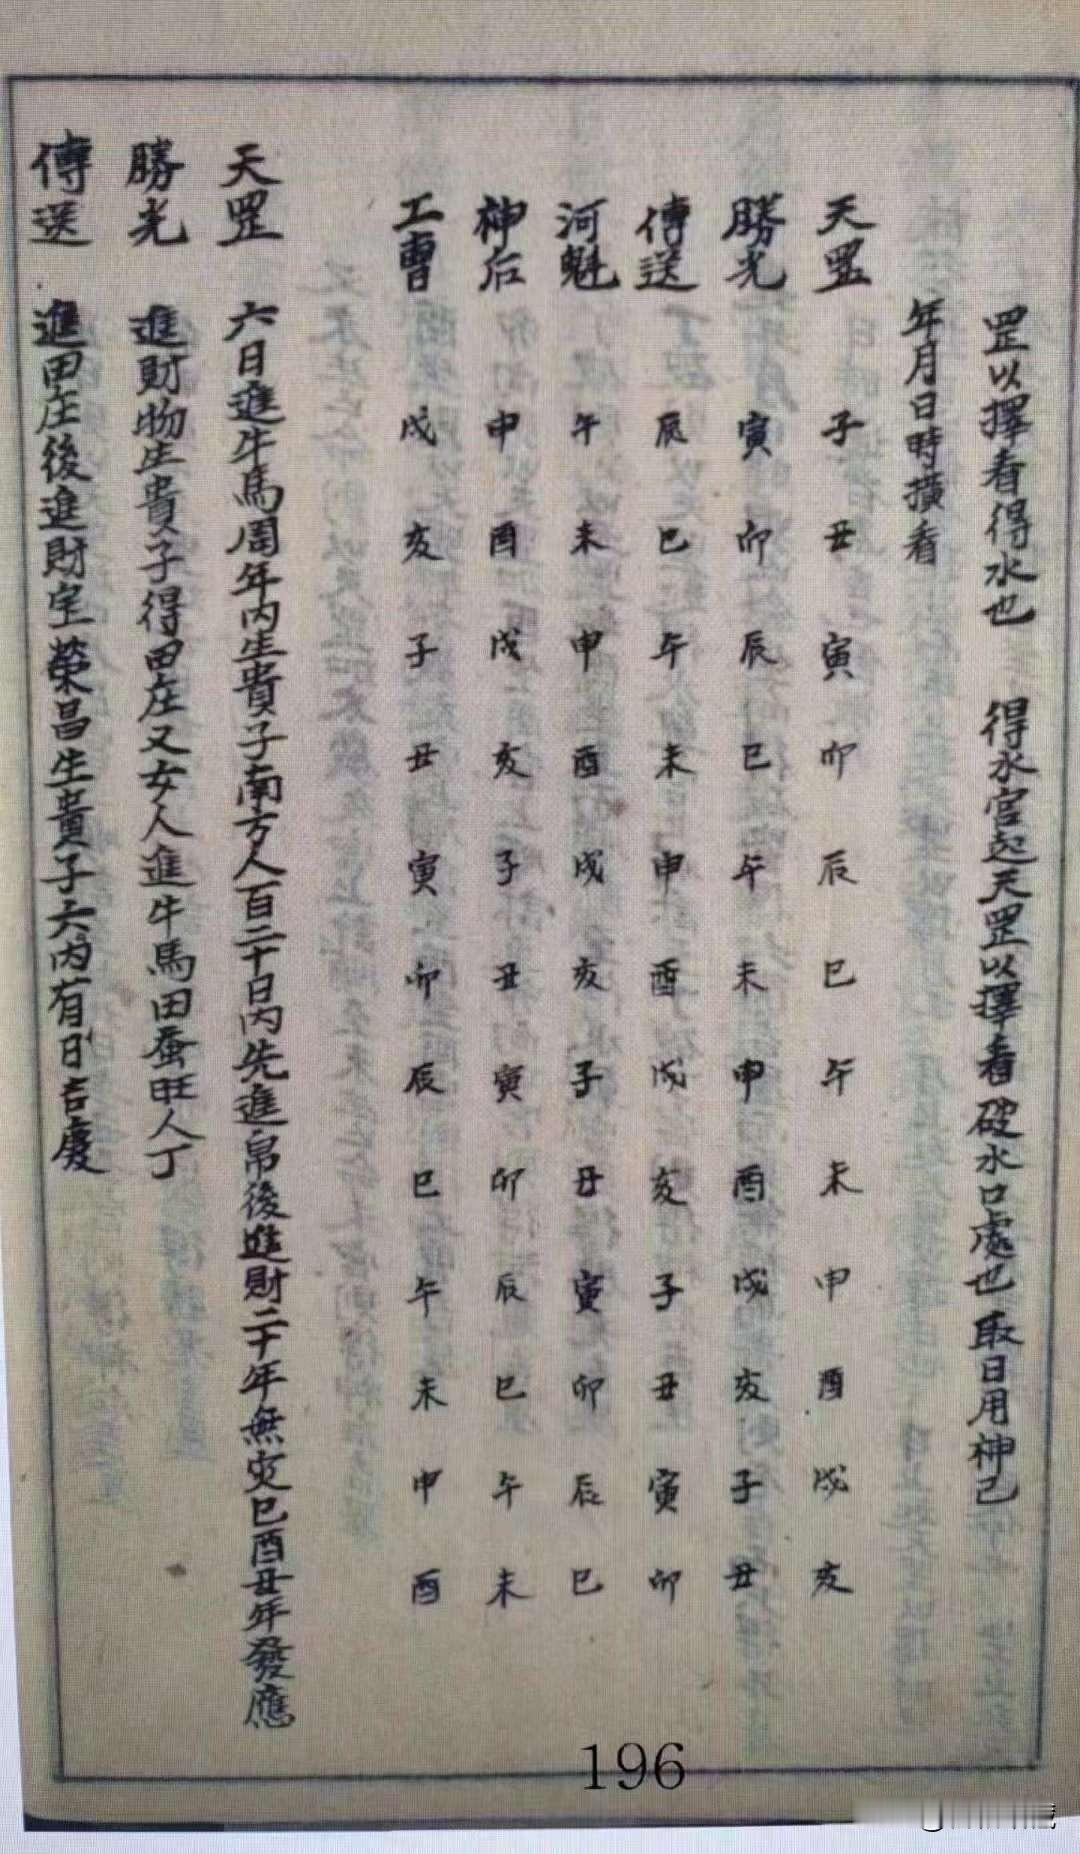 罡以擇看得水也 得水宮起天罡以擇看破水口處也取日用神己
年月日時橫看
天罡 子 丑 寅 卯 辰 巳 午 未 申 酉 戌 亥
勝光 寅 卯 辰 巳 午 未 申 酉 戌 亥 子 丑
傳送 辰 巳 午 未 申 酉 戌 亥 子 丑 寅 卯
河魁 午 未 申 酉 戌 亥 子 丑 寅 卯 辰 巳
神后 申 酉 戌 亥 子 丑 寅 卯 辰 巳 午 未
工曹 戌 亥 子 丑 寅 卯 辰 巳 午 未 申 酉
天罡 六日進牛馬周年內生貴子南方人百二十日內先進帛後進財二十年無灾巳酉丑年發應
勝光 進財物生貴子得田庄又女人進牛馬田蚕旺人丁
傳送 進田庄後進財宝榮昌生貴子六內有日吉慶
196